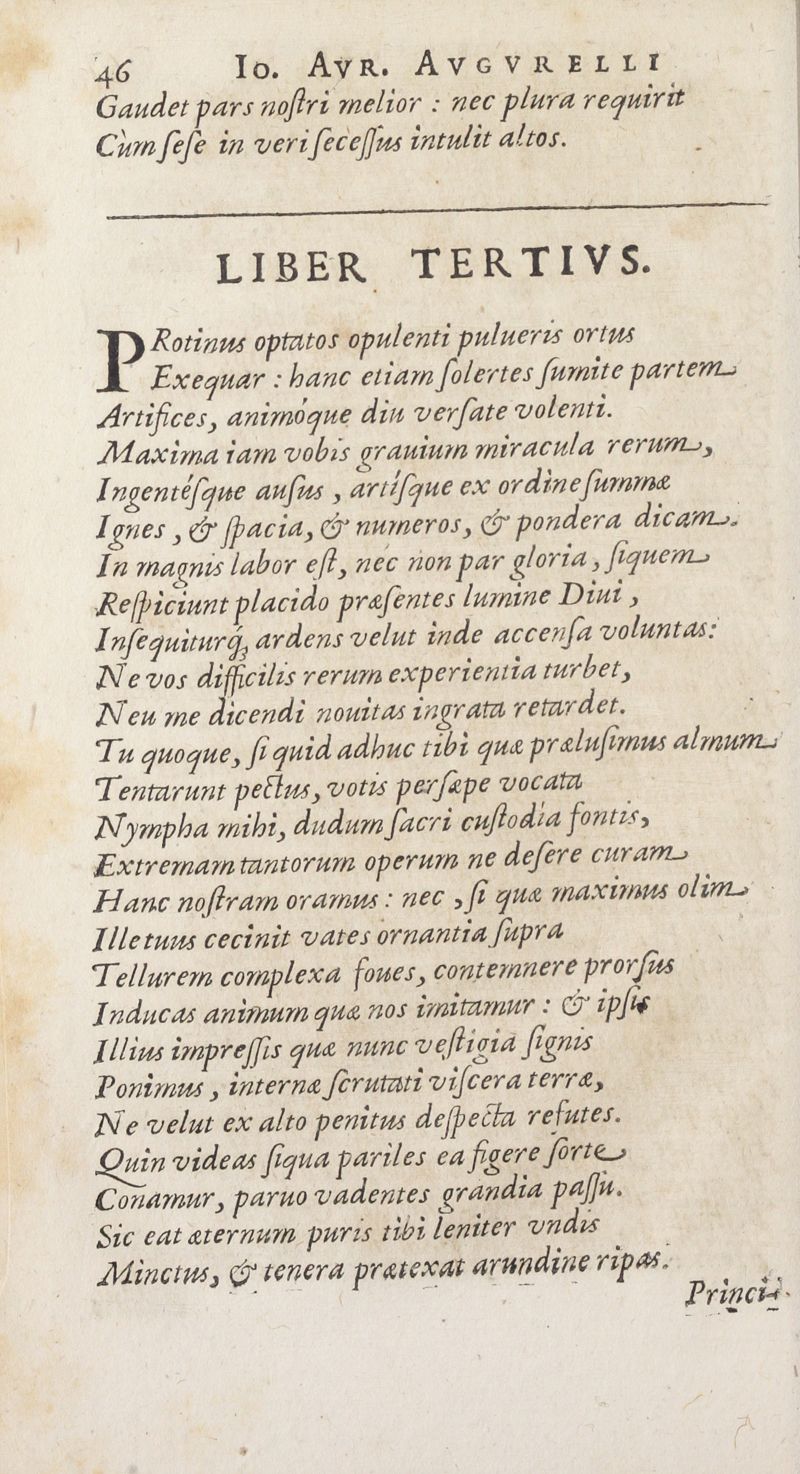 46 Io. AVR. AVGVRELLI
Gaudet pars noſtri melior : nec plura requirit
Cùm ſeſe in veri ſeceſſus intulit altos.
LIBER TERTIVS.
PRotinus optatos opulenti pulueris ortus
Exequar : hanc etiam ſolertes ſumite partem
Artifices, animóque diu verſate volenti.
Maxima iam vobis grauium miracula rerum,
Ingentéſque auſus, artíſque ex ordine ſummæ
Ignes, & ſpacia, & numeros, & pondera dicam.
In magnis labor eſt, nec non par gloria, ſiquem
Reſpiciunt placido præſentes lumine Diui,
Inſequiturq́; ardens velut inde accenſa voluntas:
Ne vos difficilis rerum experientia turbet,
Neu me dicendi nouitas ingrata retardet.
Tu quoque, ſi quid adhuc tibi quæ præluſimus almum
Tentarunt pectus, votis perſæpe vocata
Nympha mihi, dudum ſacri cuſtodia fontis,
Extremam tantorum operum ne deſere curam
Hanc noſtram oramus : nec, ſi quæ maximus olim
Ille tuus cecinit vates ornantia ſupra
Tellurem complexa foues, contemnere prorſus
Inducas animum quæ nos imitamur : & ipſis
Illius impreſſis quæ nunc veſtigia ſignis
Ponimus, internæ ſcrutati viſcera terræ,
Ne velut ex alto penitus deſpecta refutes.
Quin videas ſiqua pariles ea figere ſorte
Conamur, paruo vadentes grandia paſſu.
Sic eat æternum puris tibi leniter vndis
Minctus, & tenera prætexat arundine ripas.
Princi-